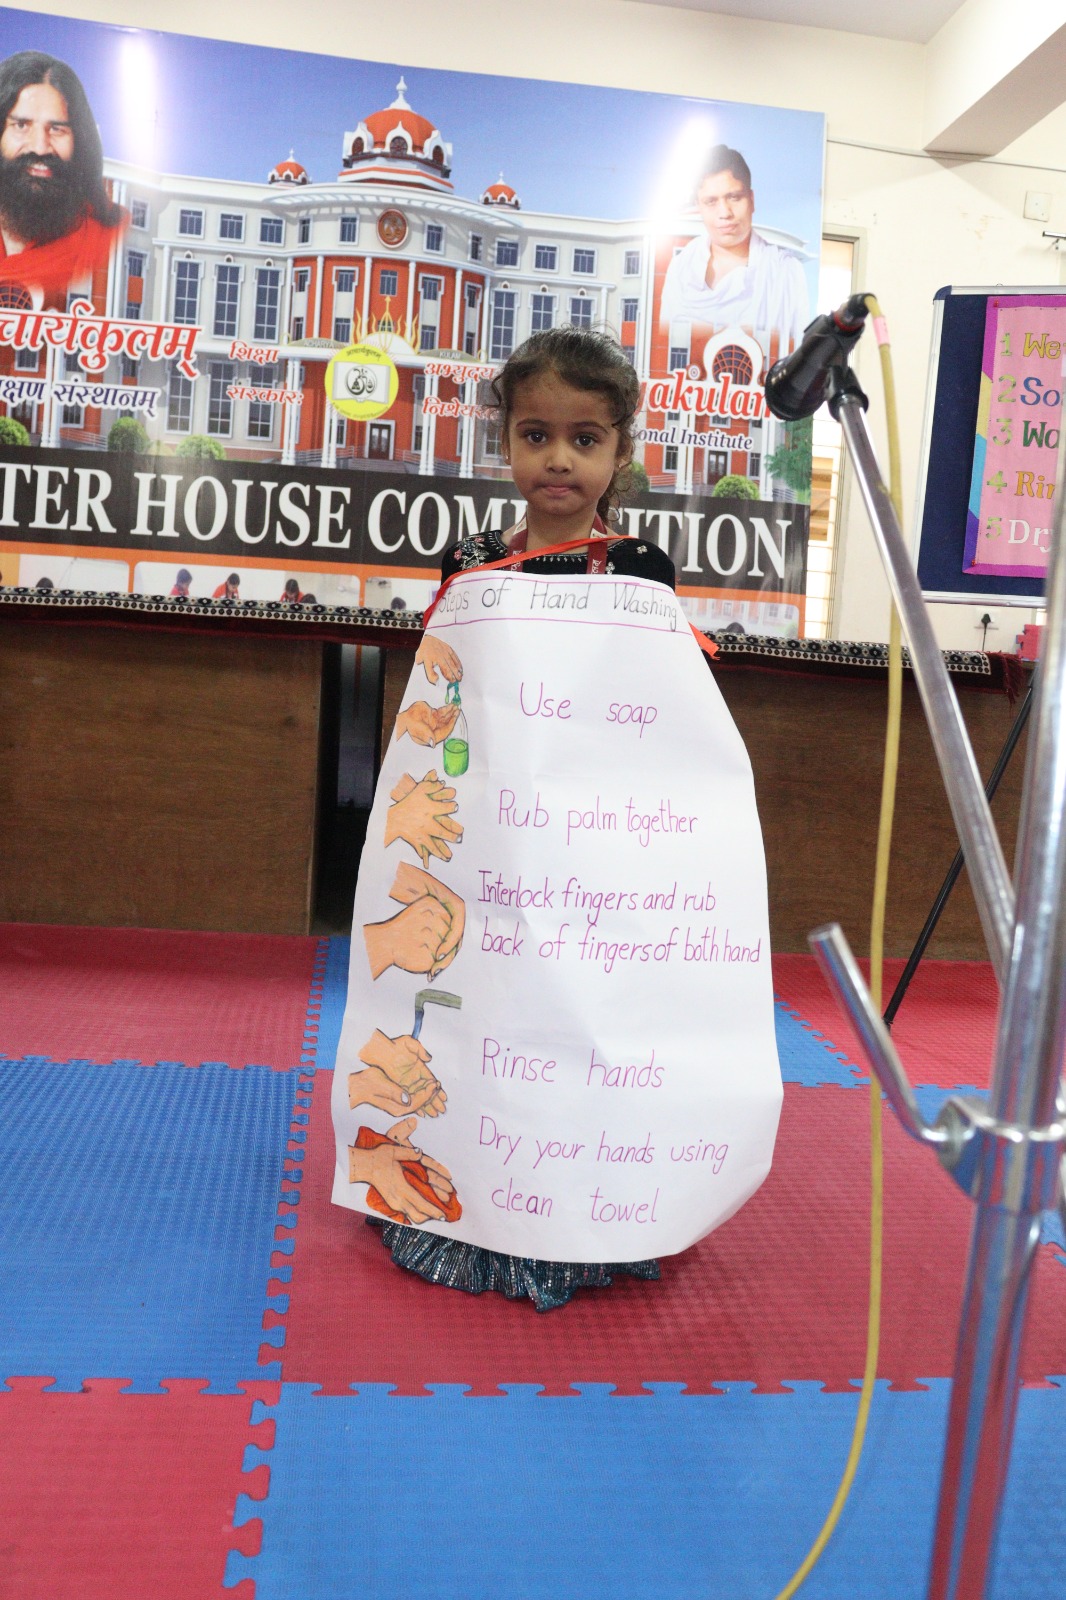 चार्यकुलम्
क्षण संस्थानम्
शिक्षा
संस्कारः
yakulam
onal Institute
TER HOUSE COM ITION
1 We
2 So
3 Wa
4 Rin
5 Dry
Steps of Hand Washing
Use soap
Rub palm together
Interlock fingers and rub
back of fingers of both hand
Rinse hands
Dry your hands using
clean towel